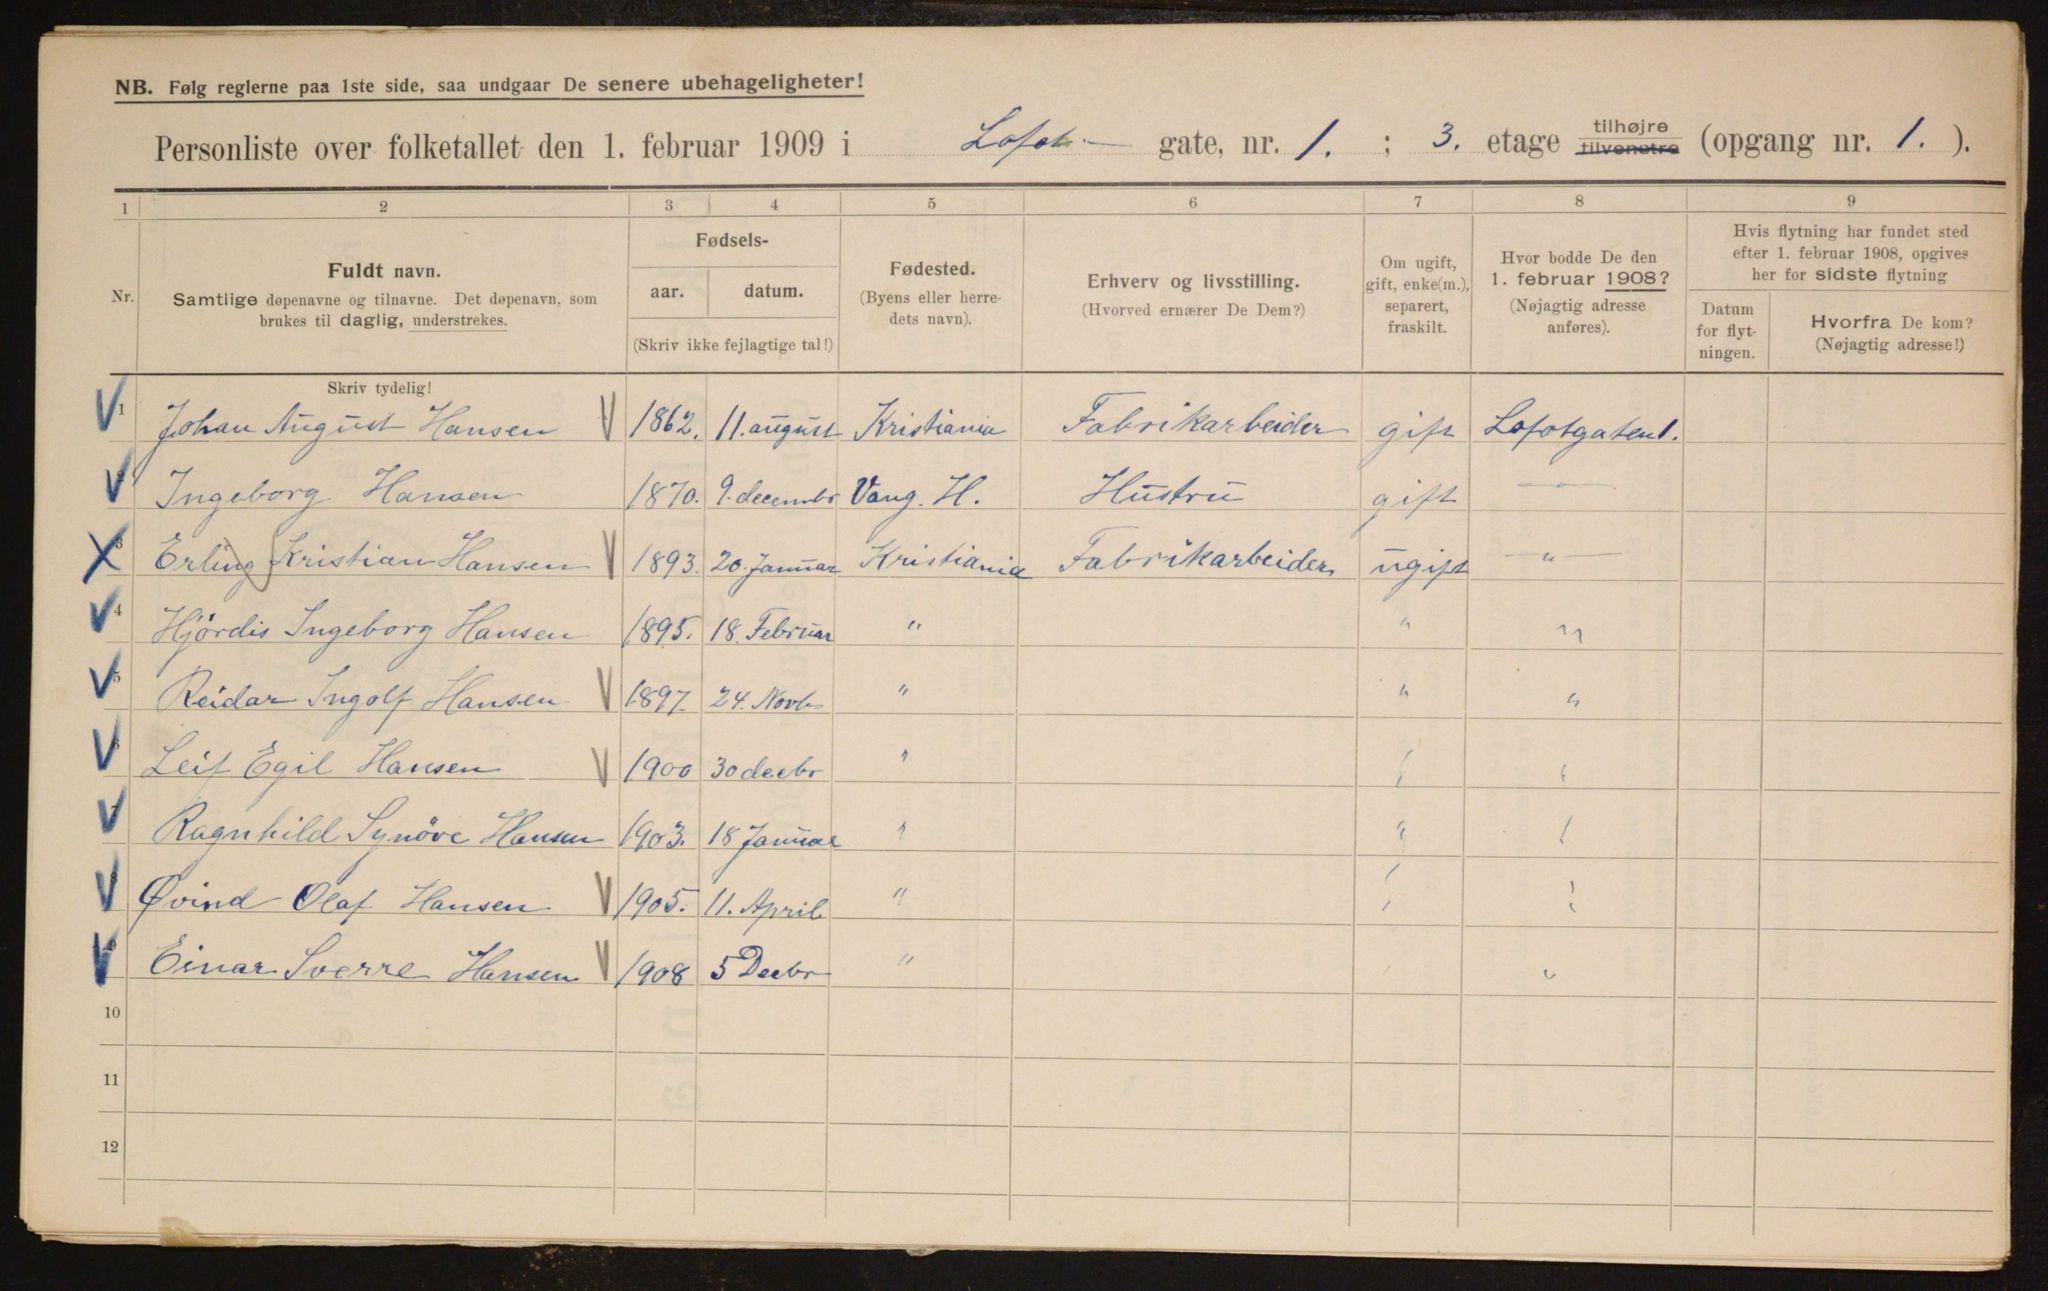 NB. Følg reglerne paa 1ste side, saa undgaar De senere ubehageligheter!
Personliste over folketallet den 1. februar 1909 i Lofot- gate, nr. 1. ; 3. etage tilhøjre tilvenstre (opgang nr. 1. ).
1 2 3 4 5 6 7 8 9
Nr.
Fuldt navn.
Samtlige døpenavne og tilnavne. Det døpenavn, som
brukes til daglig, understrekes.
Fødsels-
aar. datum.
(Skriv ikke fejlagtige tal!)
Fødested.
(Byens eller herre-
dets navn).
Erhverv og livsstilling.
(Hvorved ernærer De Dem?)
Om ugift,
gift, enke(m.),
separert,
fraskilt.
Hvor bodde De den
1. februar 1908?
(Nøjagtig adresse
anføres).
Hvis flytning har fundet sted
efter 1. februar 1908, opgives
her for sidste flytning
Datum
for flyt-
ningen.
Hvorfra De kom?
(Nøjagtig adresse!)
Skriv tydelig!
1 Johan August Hansen 1862. 11. august Kristiania Fabrikarbeider gift Lofotgaten 1.
2 Ingeborg Hansen 1870. 9. decembr Vang. H. Hustru gift —"—
3 Erling Kristian Hansen 1893. 20. Januar Kristiania Fabrikarbeider ugift —"—
4 Hjördis Ingeborg Hansen 1895. 18. Februar " " "
5 Reidar Ingolf Hansen 1897. 24. Novb " " "
6 Leif Egil Hansen 1900 30 decbr " " "
7 Ragnhild Synöve Hansen 1903. 18 Januar " " "
8 Øvind Olaf Hansen 1905. 11. April " " "
9 Einar Sverre Hansen 1908 5 Decbr " " "
10
11
12